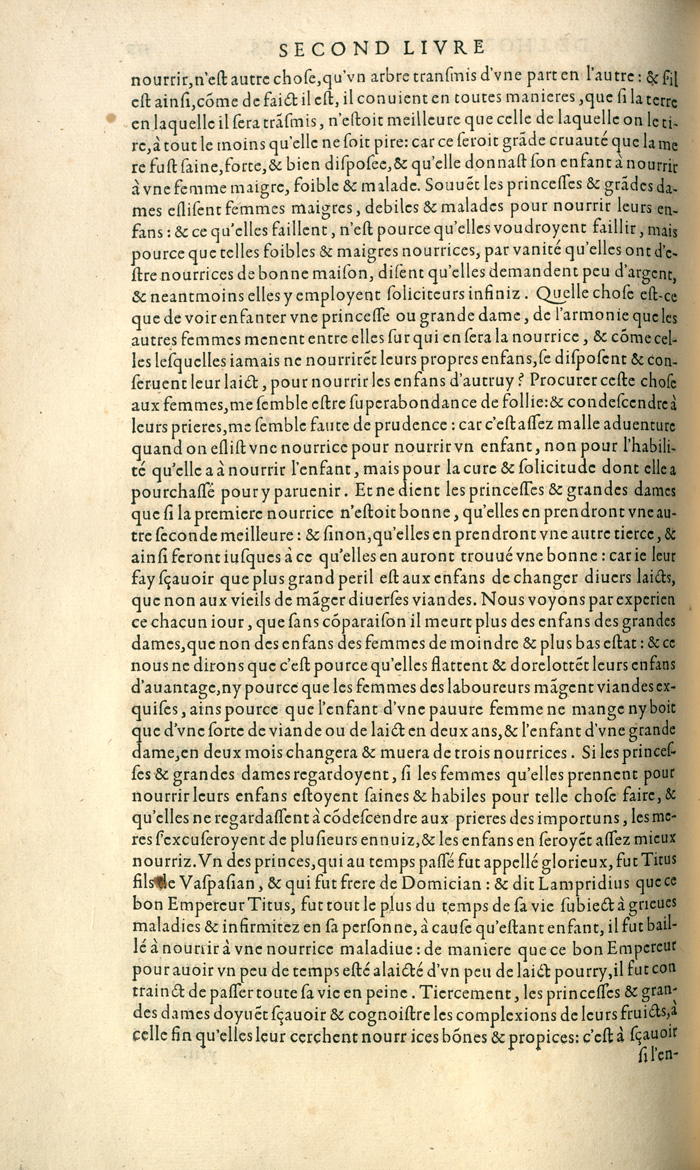 SECOND LIVRE
nourrir, n'eſt autre choſe, qu'vn arbre tranſmis d'vne part en l'autre: & ſil
eſt ainſi, cõme de faict il eſt, il conuient en toutes manieres, que ſi la terre
en laquelle il ſera trãſmis, n'eſtoit meilleure que celle de laquelle on le ti-
re, à tout le moins qu'elle ne ſoit pire: car ce ſeroit grãde cruauté que la me
re fuſt ſaine, forte, & bien diſpoſee, & qu'elle donnaſt ſon enfant à nourrir
à vne femme maigre, foible & malade. Souuẽt les princeſſes & grãdes da-
mes eſliſent femmes maigres, debiles & malades pour nourrir leurs en-
fans: & ce qu'elles faillent, n'eſt pource qu'elles voudroyent faillir, mais
pource que telles foibles & maigres nourrices, par vanité qu'elles ont d'e-
ſtre nourrices de bonne maiſon, diſent qu'elles demandent peu d'argent,
& neantmoins elles y employent ſoliciteurs infiniz. Quelle choſe eſt-ce
que de voir enfanter vne princeſſe ou grande dame, de l'armonie que les
autres femmes menent entre elles ſur qui en ſera la nourrice, & cõme cel-
les leſquelles iamais ne nourrirẽt leurs propres enfans, ſe diſpoſent & con-
ſeruent leur laict, pour nourrir les enfans d'autruy? Procurer ceſte choſe
aux femmes, me ſemble eſtre ſuperabondance de follie: & condeſcendre à
leurs prieres, me ſemble faute de prudence: car c'eſt aſſez malle aduenture
quand on eſliſt vne nourrice pour nourrir vn enfant, non pour l'habili-
té qu'elle a à nourrir l'enfant, mais pour la cure & ſolicitude dont elle a
pourchaſſé pour y paruenir. Et ne dient les princeſſes & grandes dames
que ſi la premiere nourrice n'eſtoit bonne, qu'elles en prendront vne au-
tre ſeconde meilleure: & ſinon, qu'elles en prendront vne autre tierce, &
ainſi feront iuſques à ce qu'elles en auront trouué vne bonne: car ie leur
fay ſçauoir que plus grand peril eſt aux enfans de changer diuers laicts,
que non aux vieils de mãger diuerſes viandes. Nous voyons par experien
ce chacun iour, que ſans cõparaiſon il meurt plus des enfans des grandes
dames, que non des enfans des femmes de moindre & plus bas eſtat: & ce
nous ne dirons que c'eſt pource qu'elles flattent & dorelottẽt leurs enfans
d'auantage, ny pource que les femmes des laboureurs mãgent viandes ex-
quiſes, ains pource que l'enfant d'vne pauure femme ne mange ny boit
que d'vne ſorte de viande ou de laict en deux ans, & l'enfant d'vne grande
dame, en deux mois changera & muera de trois nourrices. Si les princeſ-
ſes & grandes dames regardoyent, ſi les femmes qu'elles prennent pour
nourrir leurs enfans eſtoyent ſaines & habiles pour telle choſe faire, &
qu'elles ne regardaſſent à cõdeſcendre aux prieres des importuns, les me-
res ſ'excuſeroyent de pluſieurs ennuiz, & les enfans en ſeroyẽt aſſez mieux
nourriz. Vn des princes, qui au temps paſſé fut appellé glorieux, fut Titus
fils de Vaſpaſian, & qui fut frere de Domician: & dit Lampridius que ce
bon Empereur Titus, fut tout le plus du temps de ſa vie ſubiect à grieues
maladies & infirmitez en ſa perſonne, à cauſe qu'eſtant enfant, il fut bail-
lé à nourrir à vne nourrice maladiue: de maniere que ce bon Empereur
pour auoir vn peu de temps eſté alaicté d'vn peu de laict pourry, il fut con
trainct de paſſer toute ſa vie en peine. Tiercement, les princeſſes & gran-
des dames doyuẽt ſçauoir & cognoiſtre les complexions de leurs fruicts, à
celle fin qu'elles leur cerchent nourrices bõnes & propices: c'eſt à ſçauoir
ſi l'en-